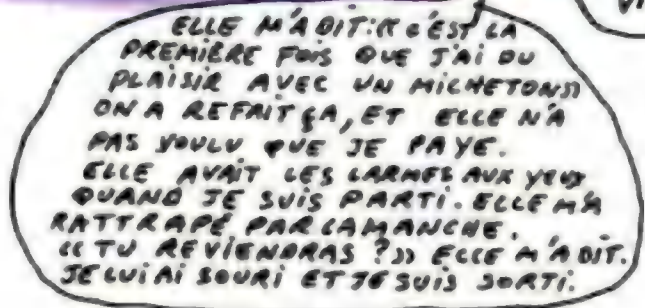 ELLE M'A DIT: « C'EST LA
PREMIÈRE FOIS QUE J'AI DU
PLAISIR AVEC UN MICHETON »
ON A REFAIT ÇA, ET ELLE N'A
PAS VOULU QUE JE PAYE.
ELLE AVAIT LES LARMES AUX YEUX
QUAND JE SUIS PARTI. ELLE M'A
RATTRAPÉ PAR LA MANCHE.
« TU REVIENDRAS ? » ELLE M'A DIT.
JE LUI AI SOURI ET JE SUIS SORTI.